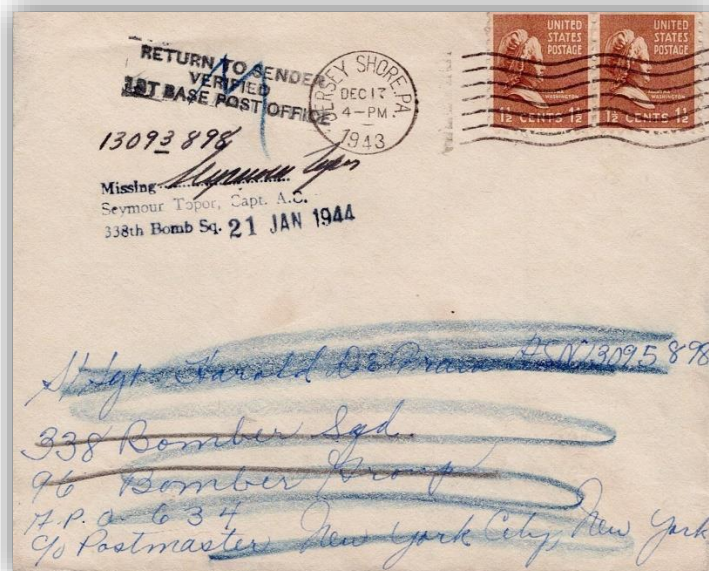 RETURN TO SENDER
VERIFIED
1ST BASE POST OFFICE
JERSEY SHORE, PA
DEC 17
4-PM
1943
UNITED
STATES
POSTAGE
1½ CENTS 1½
UNITED
STATES
POSTAGE
1½ CENTS 1½
13093898
Missing
Seymour Topor, Capt. A.C.
338th Bomb Sq. 21 JAN 1944
Harold ASN 13095898
338 Bomber Sqd.
96 Bomber Group
A.P.O. 634
c/o Postmaster New York City, New York